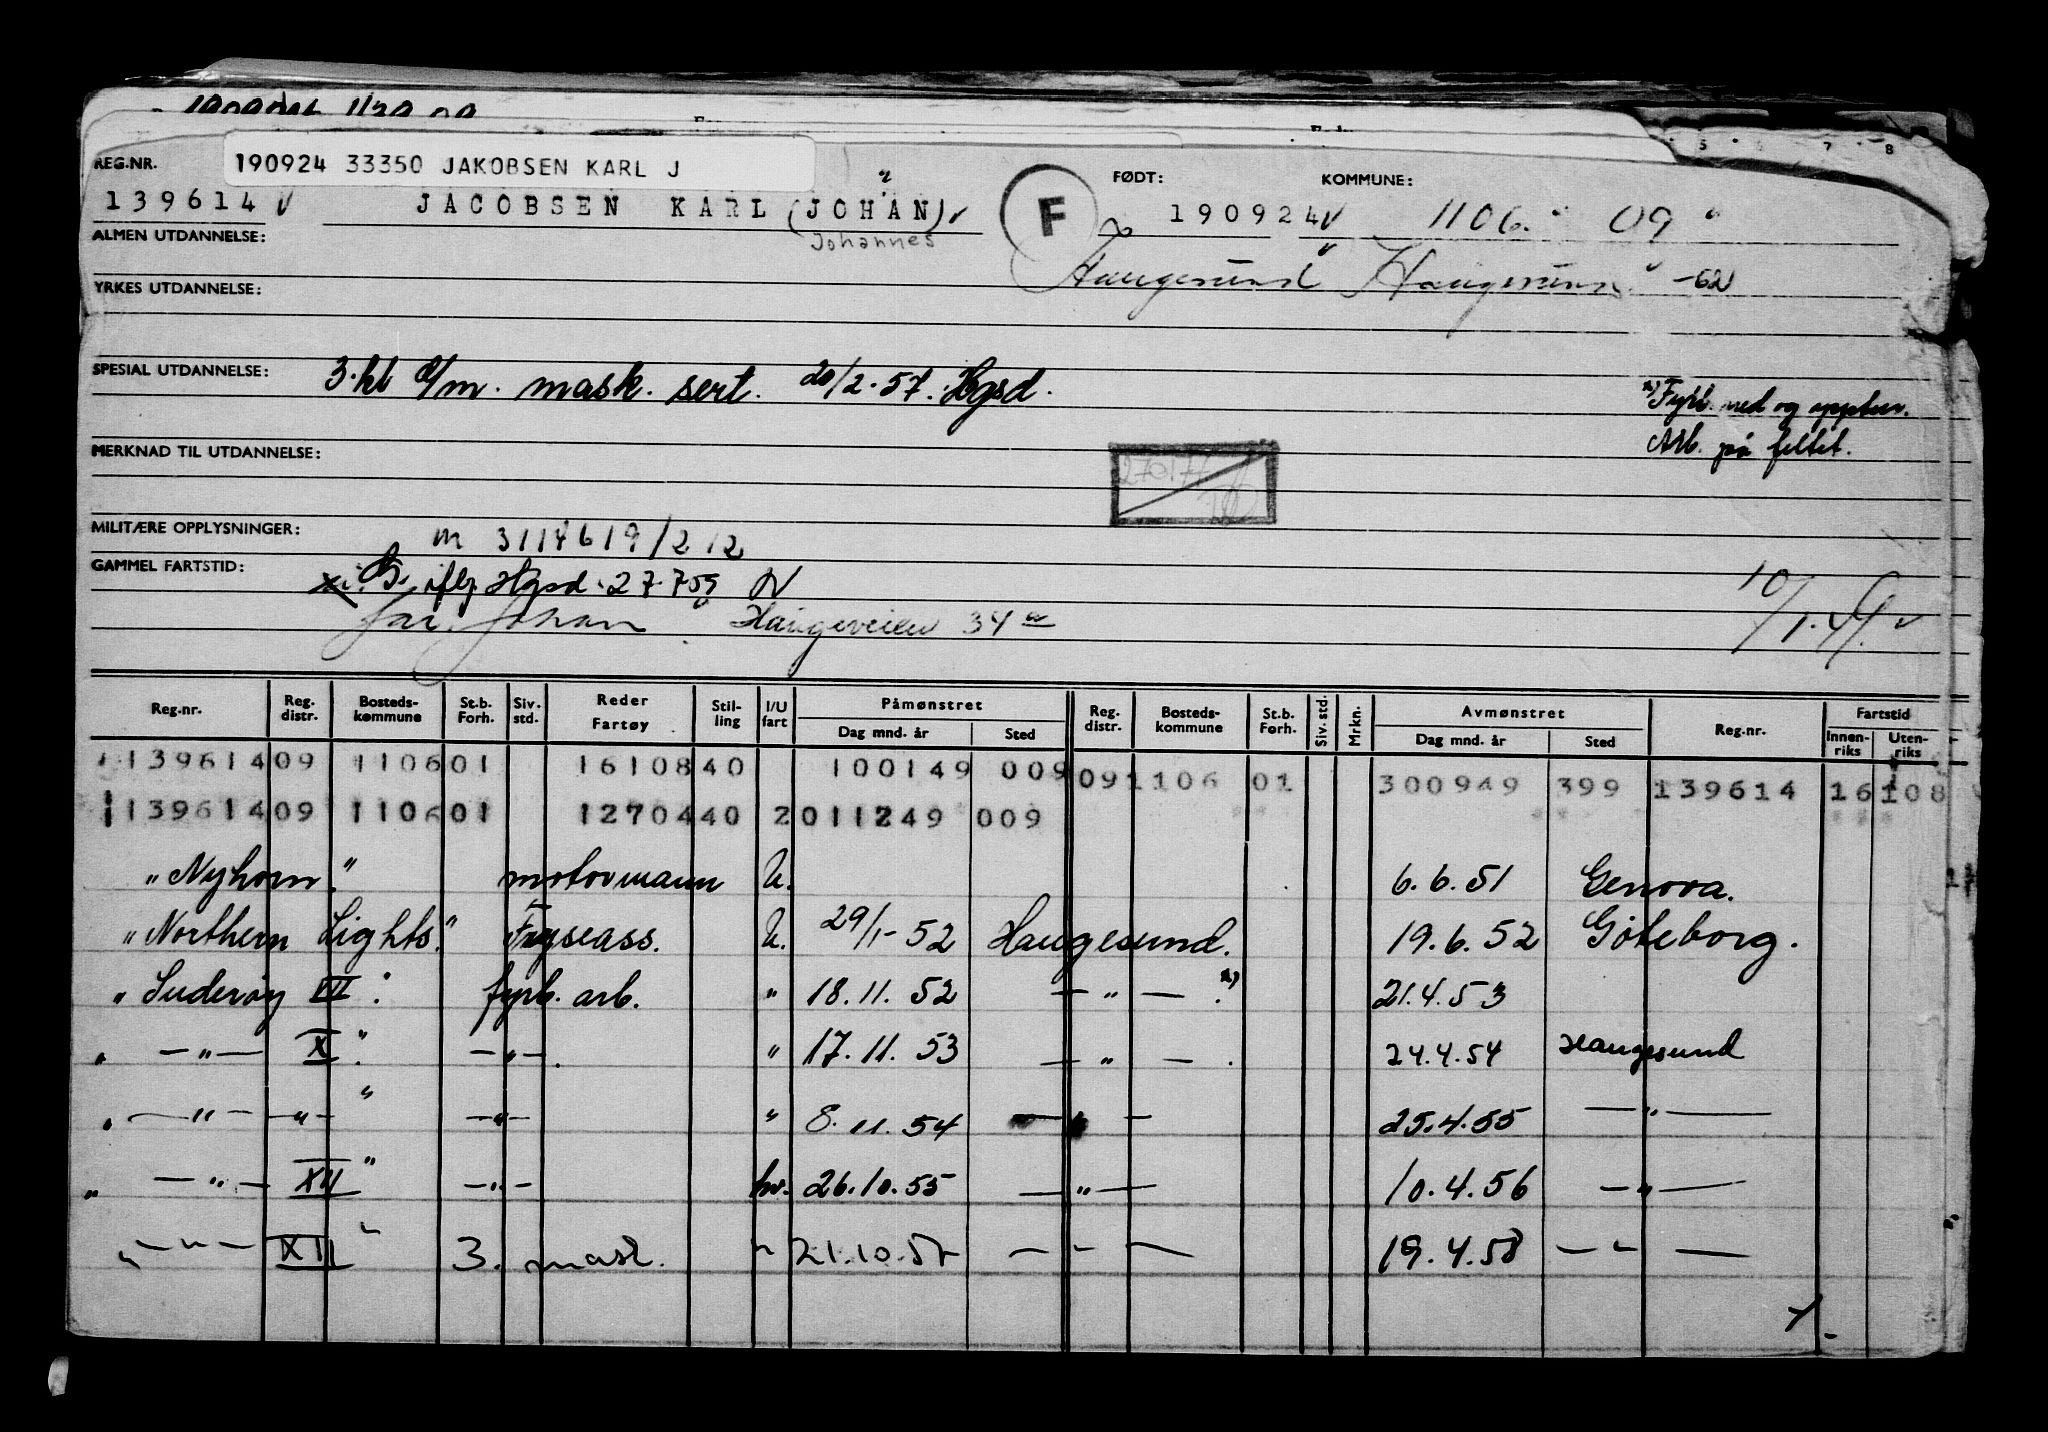 190924 33350 JAKOBSEN KARL J
REG.NR.
139614 JACOBSEN KARL (JOHAN)
Johannes
F
FØDT: 190924
KOMMUNE: 1106. 09
ALMEN UTDANNELSE:
Haugesund Haugesund -62
YRKES UTDANNELSE:
SPESIAL UTDANNELSE: 3.kl d/m. mask. sert. 20/2.57. Hgsd.
x) Fyrb. ned og opptur.
Arb. på feltet.
MERKNAD TIL UTDANNELSE:
27017
MILITÆRE OPPLYSNINGER: m 3114619/212
GAMMEL FARTSTID: iflg Hgsd. 27 7 59
far, Johan Haugeveien 34
10/1.49
Reg.nr. Reg. distr. Bosteds-kommune St.b. Forh. Siv. std. Reder Fartøy Stil-ling I/U fart Påmønstret Dag mnd. år Sted Reg. distr. Bosteds-kommune St.b. Forh. Siv. std. Mrkn. Avmønstret Dag mnd. år Sted Reg.nr. Fartstid Innen-riks Uten-riks
139614 09 1106 01 16108 40 100149 009 09 1106 01 300949 399 139614 16108
139614 09 1106 01 12704 40 2 011249 009
"Nyhorn." motormann U. 6.6.51 Genova.
"Northern Lights." Fryseass. U. 29/1-52 Haugesund. 19.6.52 Göteborg.
"Suderøy VII". fyrb. arb. " 18.11.52 — " — . x) 21.4.53
" — " — X". — " — . " 17.11.53 — " — . 24.4.54 Haugesund
" — " — " — " — " — " 8.11.54 — " — 25.4.55 — " —
" — " — XII" — " — hv. 26.10.55 — " — 10.4.56 — " —
" — " — XII" 3. mask. " 21.10.57 — " — 19.4.58 — " —